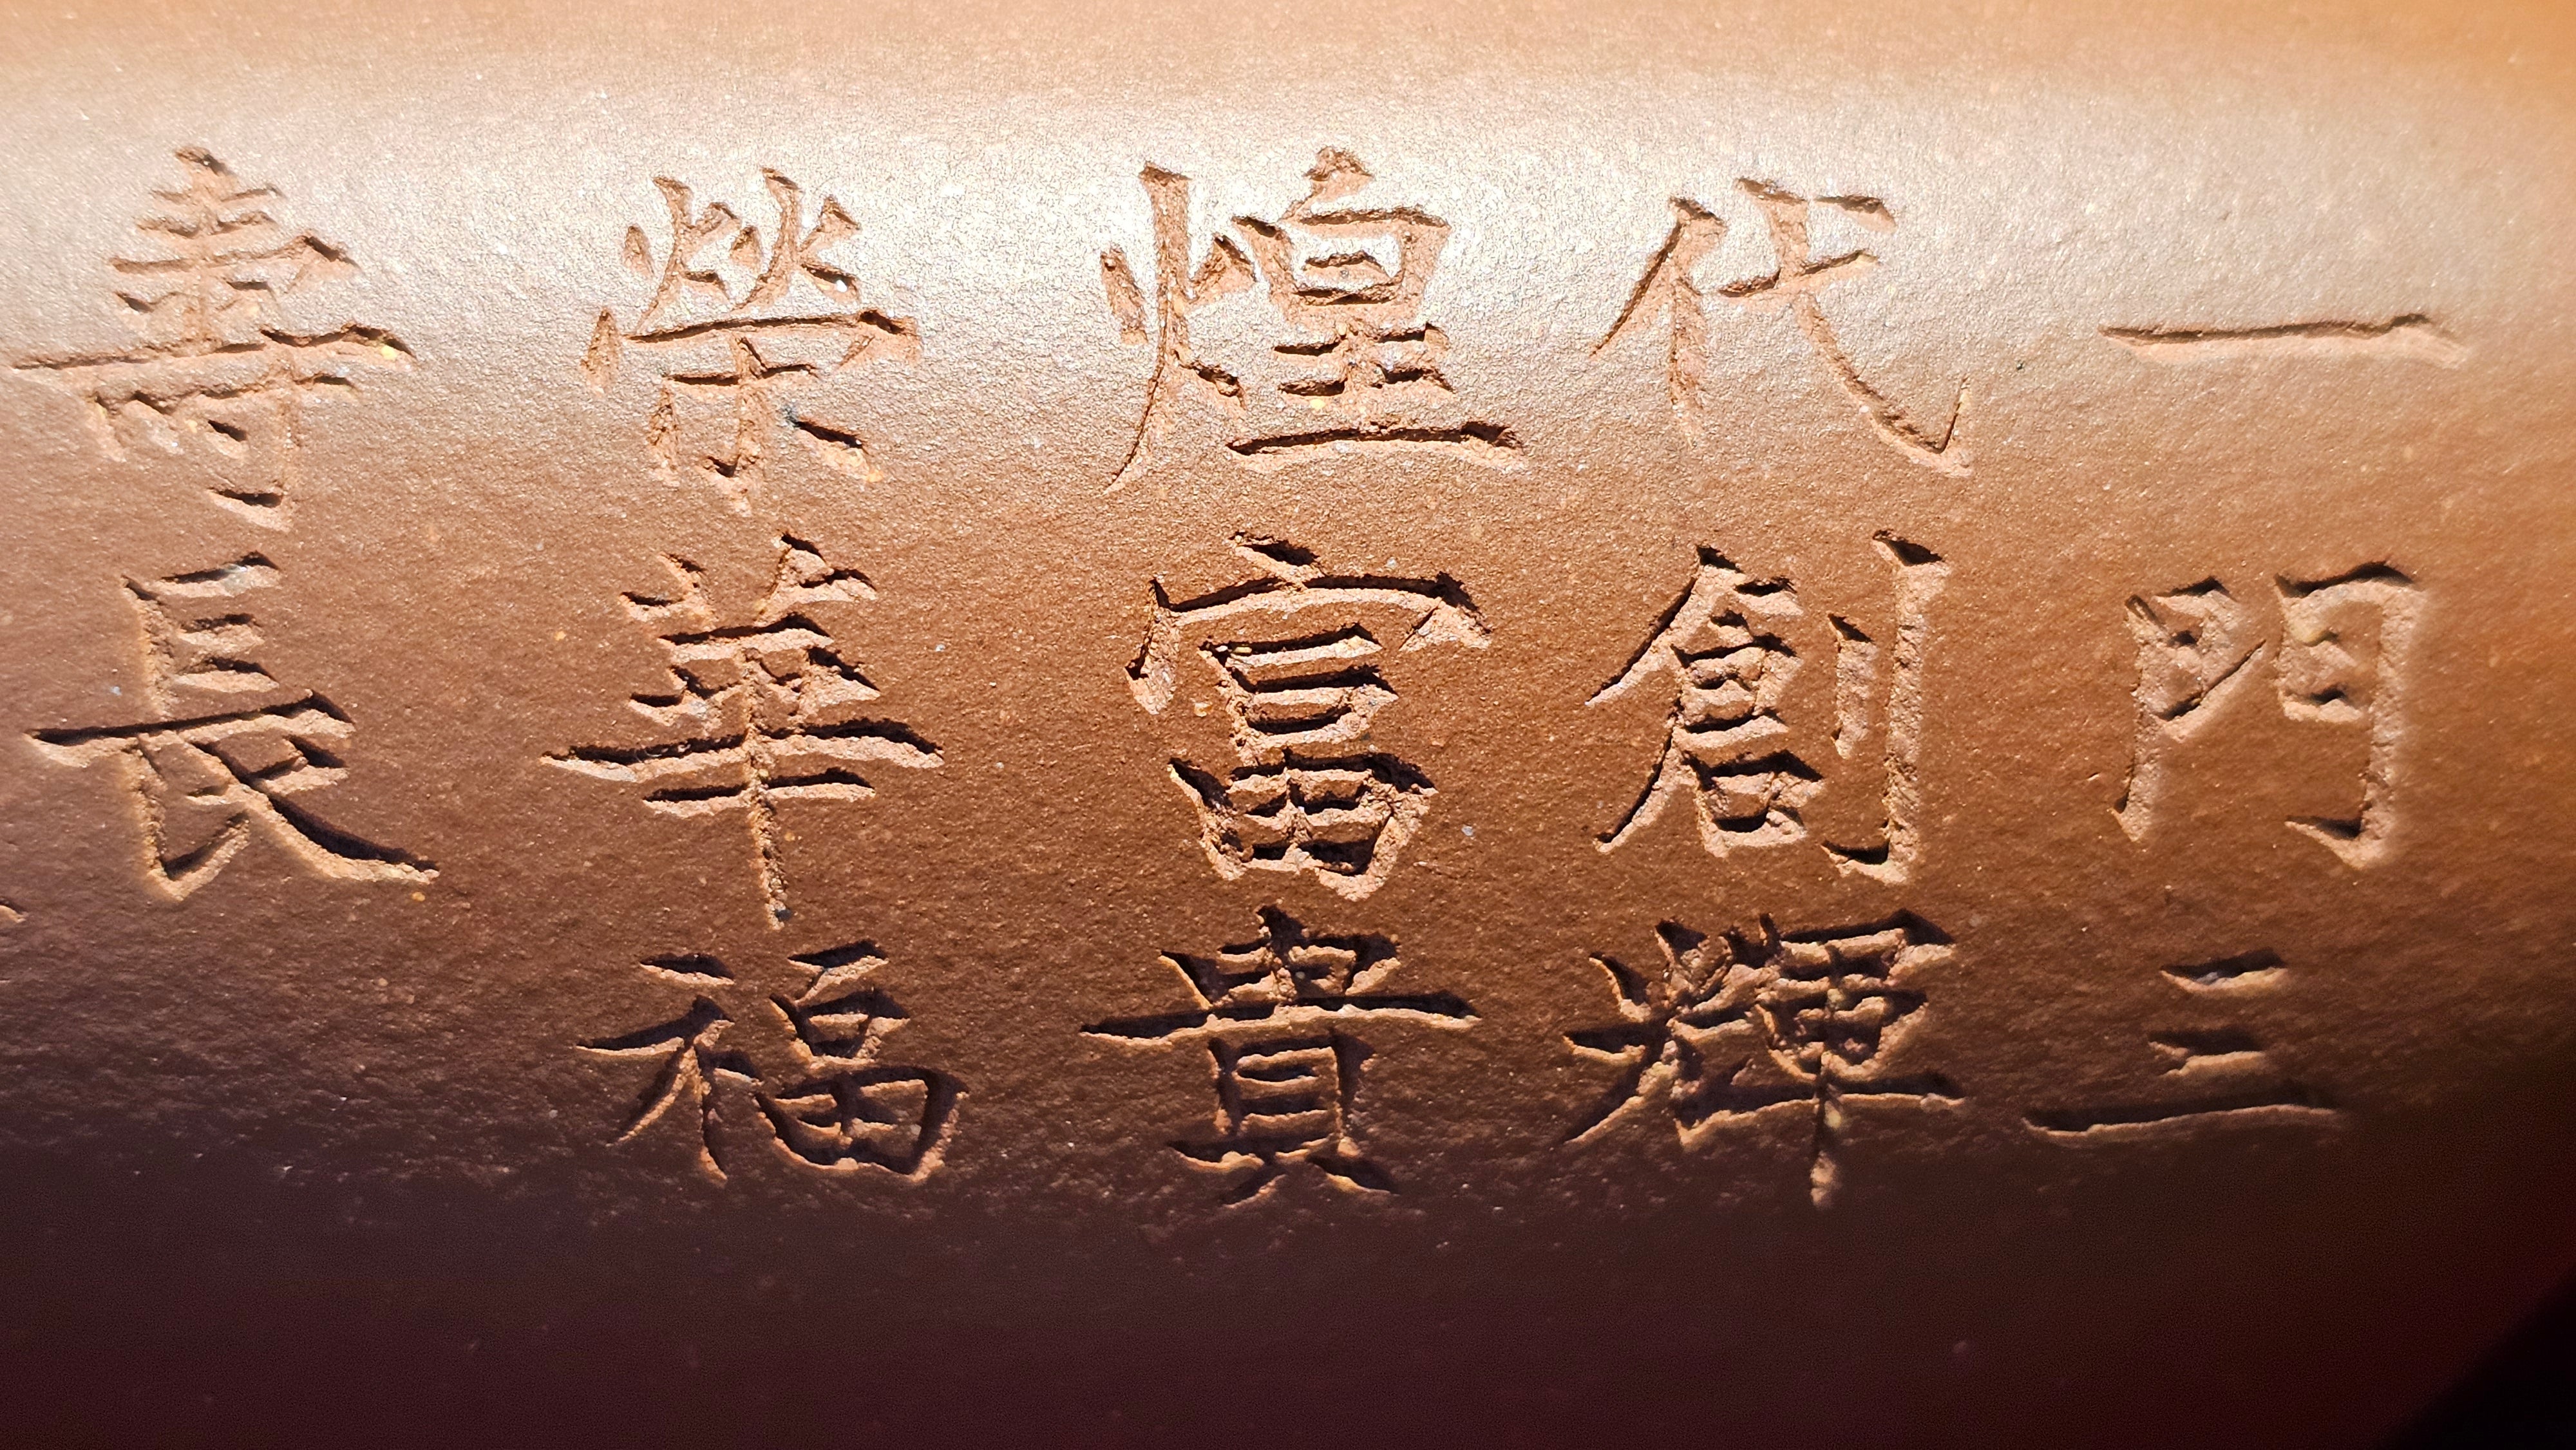 一門三
代創輝
煌富貴
榮華福
壽長